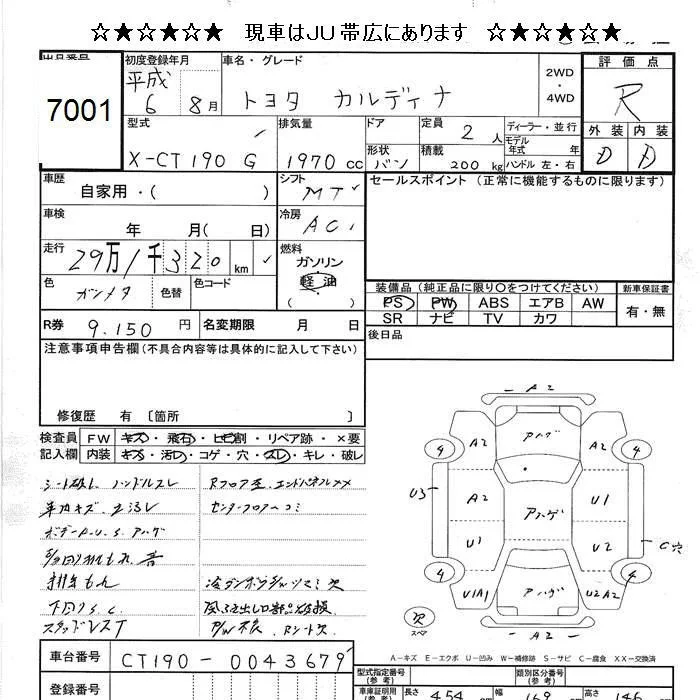 ☆★☆★☆★☆ 現車はJU帯広にあります ☆★☆★☆★☆
7001
初度登録年月
平成
6 8月
車名・グレード
トヨタ カルディナ
2WD
・
4WD
評価点
R
外装 内装
D D
型式
X-CT190G
排気量
1970cc
ドア
形状 バン
定員 2人
積載 200kg
ディーラー・並行
モデル年式 年
ハンドル 左・右
車歴
自家用・( )
シフト
MT
セールスポイント (正常に機能するものに限ります)
車検
年 月( 日)
冷房
AC
走行
29万1千320km
燃料
ガソリン
軽油
( )
色
ガンメタ
色替
色コード
装備品 (純正品に限り○をつけてください)
PS PW ABS エアB AW
SR ナビ TV カワ
新車保証書
有・無
R券 9.150円
名変期限 月 日
後日品
注意事項申告欄 (不具合内容等は具体的に記入して下さい)
修復歴 有 〔箇所 〕
検査員
記入欄
FW キズ・飛石・ヒビ割・リペア跡・×要
内装 キズ・汚れ・コゲ・穴・スレ・キレ・破レ
シート破レ ハンドルスレ
車内キズ
ボデーA.U.S.アハゲ
下回りS.C
スタッドレスT
Rフロア歪 エンドパネルXX
P/W不良
A2
4 A2 アハゲ A2 4
U3 A2 アハゲ U1
U1 U2 C穴
4 U1A1 アハゲ U2A2 4
A2
スペア
A-キズ E-エクボ U-凹み W-補修跡 S-サビ C-腐食 XX-交換済
車台番号 CT190-0043679
登録番号
型式指定番号
(参考)
類別区分番号
(参考)
車庫証明用
(参考)
長さ 454
幅 169
高さ 146